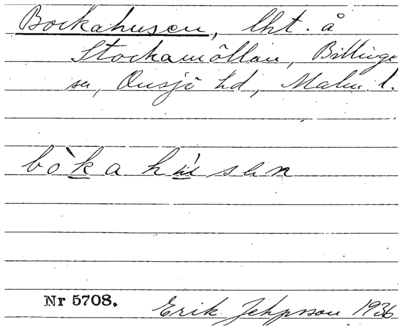 Bockahusen, lht. å
Stockamöllan, Billinge
sn, Onsjö hd, Malm. l.
bòkahúsen
Nr 5708.
Erik Jeppsson 1936